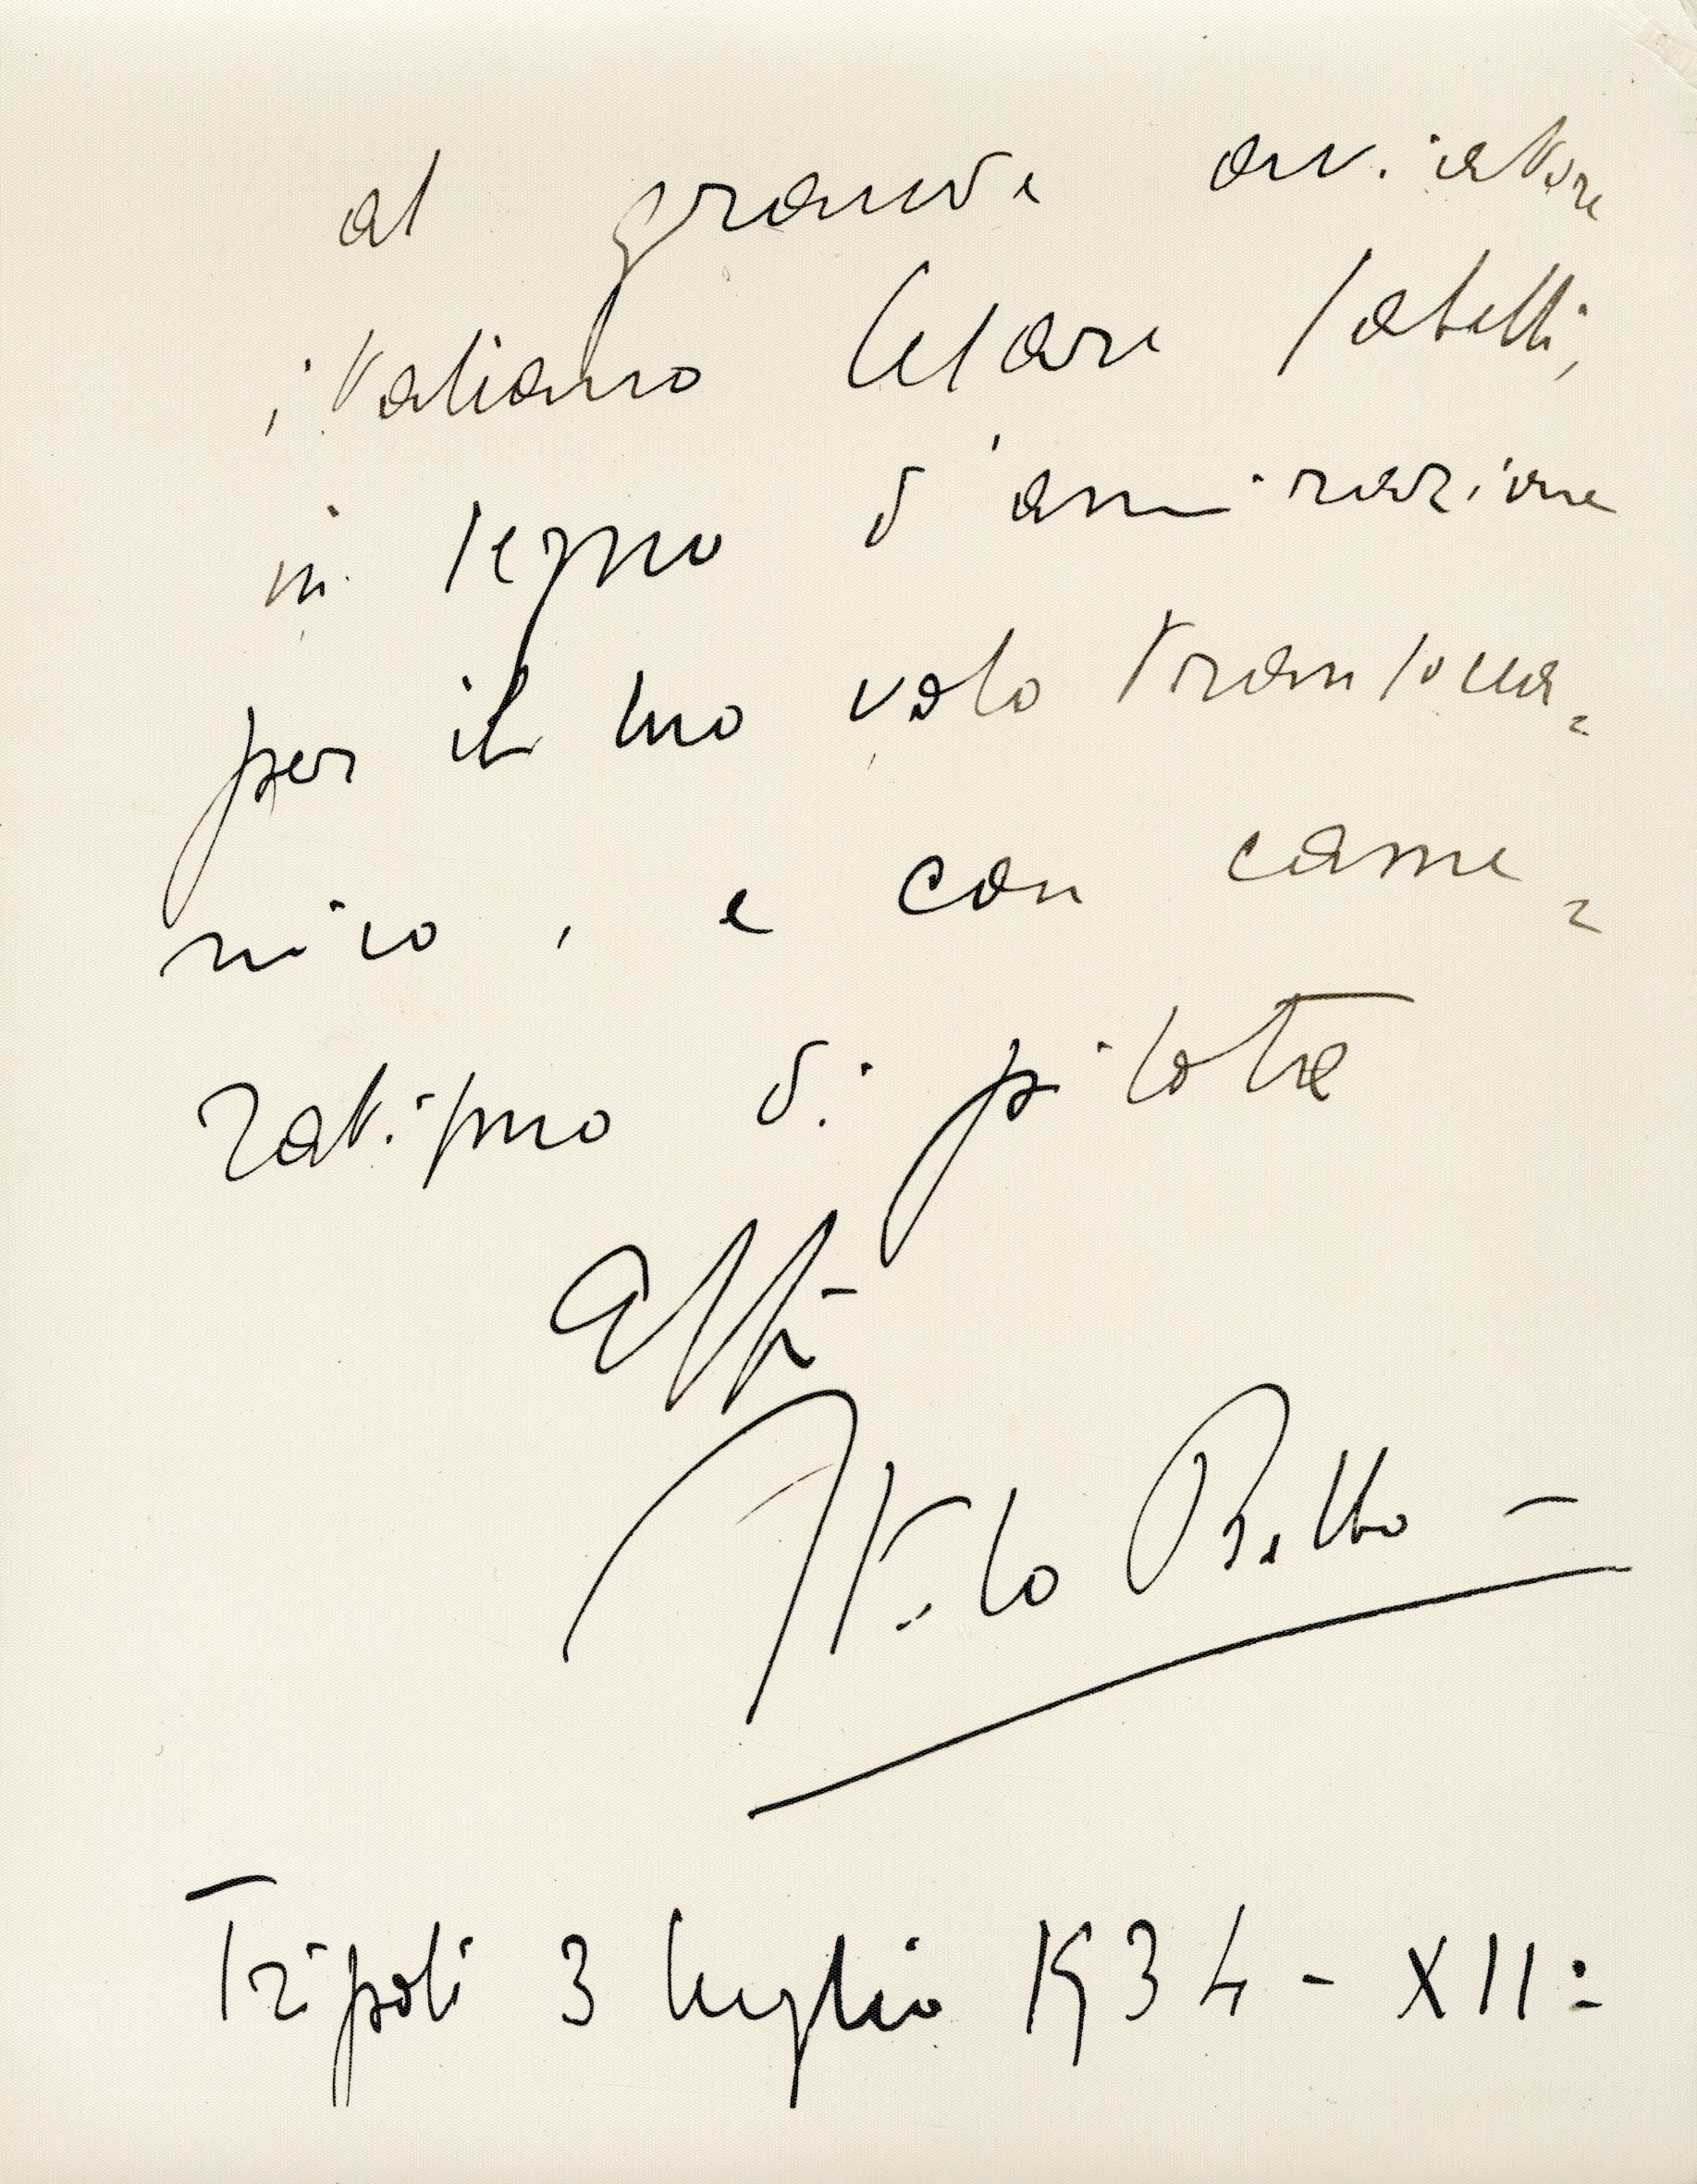 al grande aviatore
italiano Cesare Sabelli,
in segno d'amirazione
per il suo volo transocea=
nico, e con came=
ratismo di pilota
Aff
Italo Balbo –
Tripoli 3 luglio 1934 - XII: